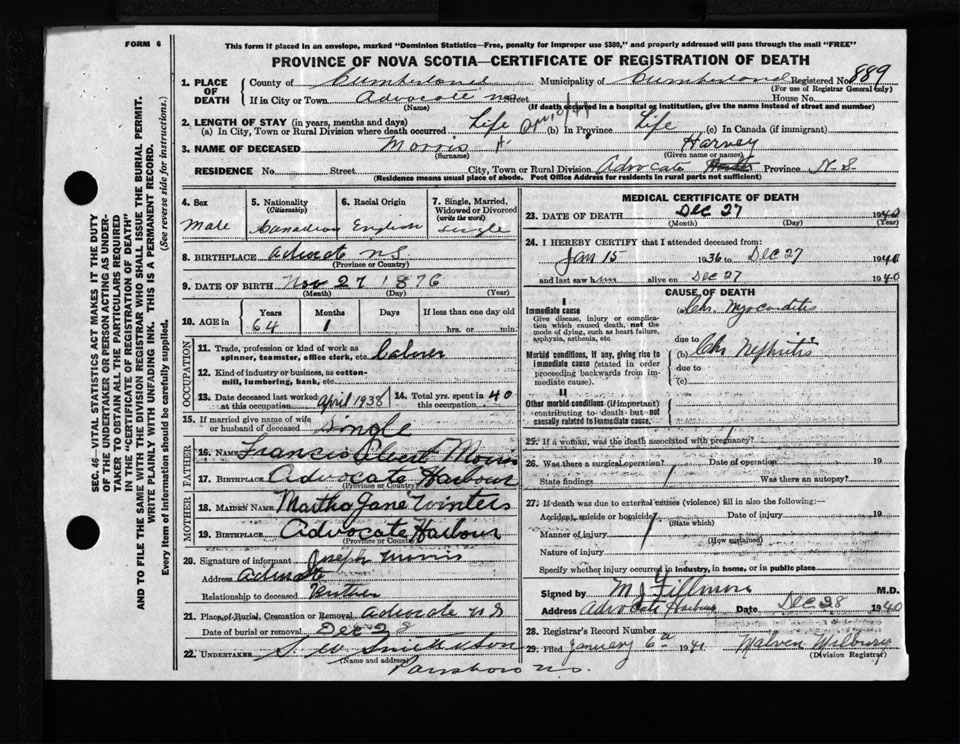 FORM 6
This form if placed in an envelope, marked "Dominion Statistics—Free, penalty for improper use $300," and properly addressed will pass through the mail "FREE"
PROVINCE OF NOVA SCOTIA—CERTIFICATE OF REGISTRATION OF DEATH
1. PLACE OF DEATH County of Cumberland Municipality of Cumberland Registered No. 889
(For use of Registrar General only)
If in City or Town Advocate N.S. Street House No.
(Name) (If death occurred in a hospital or institution, give the name instead of street and number)
2. LENGTH OF STAY (in years, months and days)
(a) In City, Town or Rural Division where death occurred Life (b) In Province Life (c) In Canada (if immigrant)
3. NAME OF DECEASED Morris Harvey
(Surname) (Given name or names)
RESIDENCE No. Street City, Town or Rural Division Advocate Province N.S.
(Residence means usual place of abode. Post Office Address for residents in rural parts not sufficient)
4. Sex Male
5. Nationality (Citizenship) Canadian
6. Racial Origin English
7. Single, Married, Widowed or Divorced (write the word) Single
8. BIRTHPLACE Advocate N.S.
(Province or Country)
9. DATE OF BIRTH Nov 27 1876
(Month) (Day) (Year)
10. AGE in Years 64 Months 1 Days If less than one day old hrs. or min.
OCCUPATION
11. Trade, profession or kind of work as spinner, teamster, office clerk, etc. Labourer
12. Kind of industry or business, as cotton-mill, lumbering, bank, etc.
13. Date deceased last worked at this occupation April 1938 14. Total yrs. spent in this occupation 40
15. If married give name of wife or husband of deceased Single
FATHER
16. NAME Francis Morris
17. BIRTHPLACE Advocate Harbour
(Province or Country)
MOTHER
18. MAIDEN NAME Martha Jane Winters
19. BIRTHPLACE Advocate Harbour
(Province or Country)
20. Signature of informant Joseph Morris
Address Advocate
Relationship to deceased Brother
21. Place of Burial, Cremation or Removal Advocate N.S
Date of burial or removal Dec 28
22. UNDERTAKER
(Name and address)
Parrsboro N.S.
MEDICAL CERTIFICATE OF DEATH
23. DATE OF DEATH Dec 27 1940
(Month) (Day) (Year)
24. I HEREBY CERTIFY that I attended deceased from:
Jan 15 1936 to Dec 27 1940
and last saw him alive on Dec 27 1940
CAUSE OF DEATH
I
Immediate cause
Give disease, injury or complication which caused death, not the mode of dying, such as heart failure, asphyxia, asthenia, etc
(a) Chr. Myocarditis
due to
Morbid conditions, if any, giving rise to immediate cause (stated in order proceeding backwards from immediate cause).
(b) Chr Nephritis
due to
(c)
II
Other morbid conditions (if important) contributing to death but not causally related to immediate cause.
25. If a woman, was the death associated with pregnancy?
26. Was there a surgical operation? Date of operation 19
State findings Was there an autopsy?
27. If death was due to external causes (violence) fill in also the following:—
Accident, suicide or homicide? Date of injury 19
(State which)
Manner of injury
(How sustained)
Nature of injury
Specify whether injury occurred in industry, in home, or in public place
Signed by M J Fillmore M.D.
Address Advocate Harbour Date Dec 28 1940
28. Registrar's Record Number
29. Filed January 6th 1941
(Division Registrar)
SEC. 46—VITAL STATISTICS ACT MAKES IT THE DUTY OF THE UNDERTAKER OR PERSON ACTING AS UNDERTAKER TO OBTAIN ALL THE PARTICULARS REQUIRED IN THE "CERTIFICATE OF REGISTRATION OF DEATH" AND TO FILE THE SAME WITH THE DIVISION REGISTRAR WHO SHALL ISSUE THE BURIAL PERMIT.
WRITE PLAINLY WITH UNFADING INK. THIS IS A PERMANENT RECORD.
Every item of information should be carefully supplied. (See reverse side for instructions.)